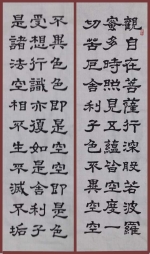 觀自在菩薩行深般若波羅
蜜多時照見五蘊皆空度一
切苦厄舍利子色不異空空
不異色色即是空空即是色
受想行識亦復如是舍利子
是諸法空相不生不滅不垢